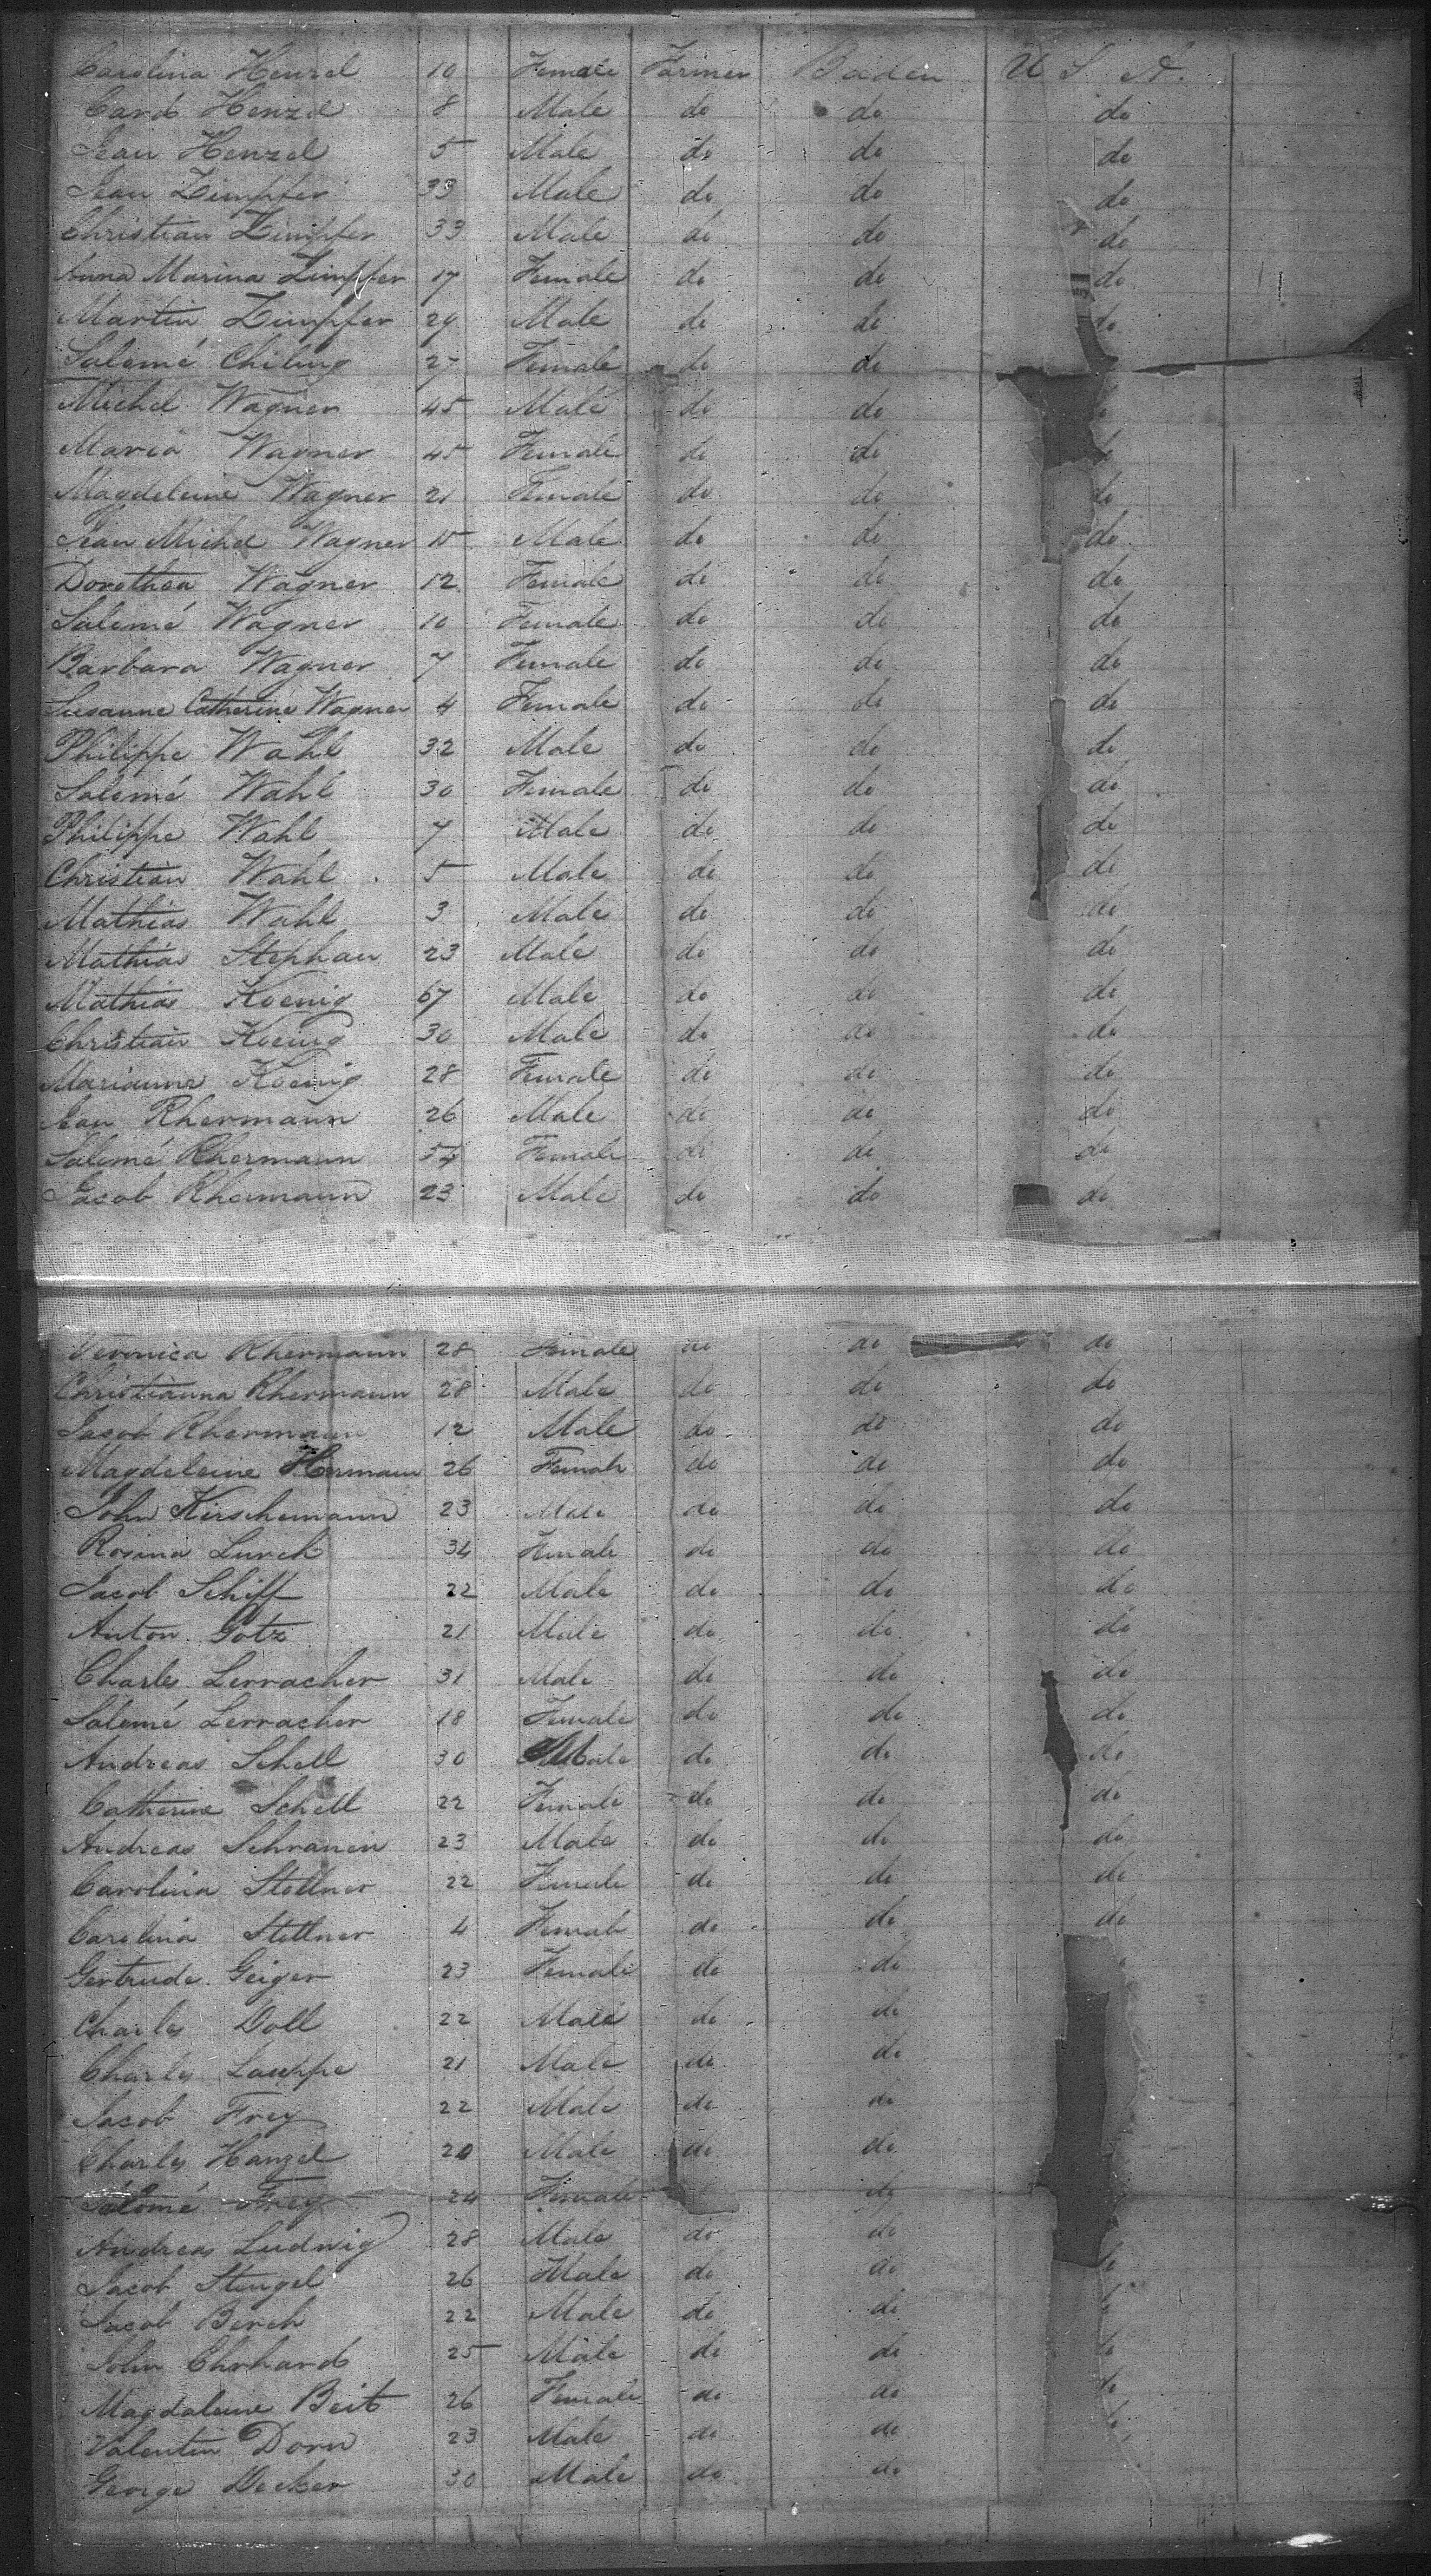 Carolina Henzel 10 Female Farmer Baden U S A.
Carob Henzel 8 Male do do do
Jean Henzel 5 Male do do do
Jean Zimpfer 33 Male do do do
Christian Zimpfer 33 Male do do do
Anna Marina Zimpfer 17 Female do do do
Martin Zimpfer 29 Male do do do
Salomé 27 Female do do do
Michel Wagner 45 Male do do
Maria Wagner 45 Female do do
Magdeleine Wagner 21 Female do do do
Jean Michel Wagner 15 Male do do do
Dorothea Wagner 12 Female do do do
Salomé Wagner 10 Female do do do
Barbara Wagner 7 Female do do do
Susanne Catherine Wagner 4 Female do do do
Philippe Wahl 32 Male do do do
Salomé Wahl 30 Female do do do
Philippe Wahl 7 Male do do do
Christian Wahl 5 Male do do do
Mathias Wahl 3 Male do do do
Mathias Stephan 23 Male do do do
Mathias Koenig 67 Male do do do
Christian Koenig 30 Male do do do
Marianne Koenig 28 Female do do do
Jean Rhermann 26 Male do do do
Salomé Rhermann 54 Female do do do
Jacob Rhermann 23 Male do do do
Veronica Rhermann 28 Female do do do
Christianna Rhermann 28 Male do do do
Jacob Rhermann 12 Male do do do
Magdeleine Hermann 26 Female do do do
John Kirschemann 23 Male do do do
Rosina Lurch 34 Female do do do
Jacob Schiff 22 Male do do do
Anton Gotz 21 Male do do do
Charles Lerracher 31 Male do do do
Salomé Lerracher 18 Female do do do
Andreas Schell 30 Male do do do
Catherine Schell 22 Female do do do
Andreas Schranen 23 Male do do do
Carolina Stellner 22 Female do do do
Carolina Stellner 4 Female do do do
Gertrude Geiger 23 Female do do
Charles Doll 22 Male do do
Charles Lauppe 21 Male do do
Jacob Frey 22 Male do do
Charles Hangel 20 Male do do
Salomé Frey 24 Female do
Andreas Ludwig 28 Male do do
Jacob Stengel 26 Male do do
Jacob Berch 22 Male do do
John Ehrhard 25 Male do do
Magdaleine Beit 26 Female do do do
Valentin Dorn 23 Male do do
George Decker 30 Male do do